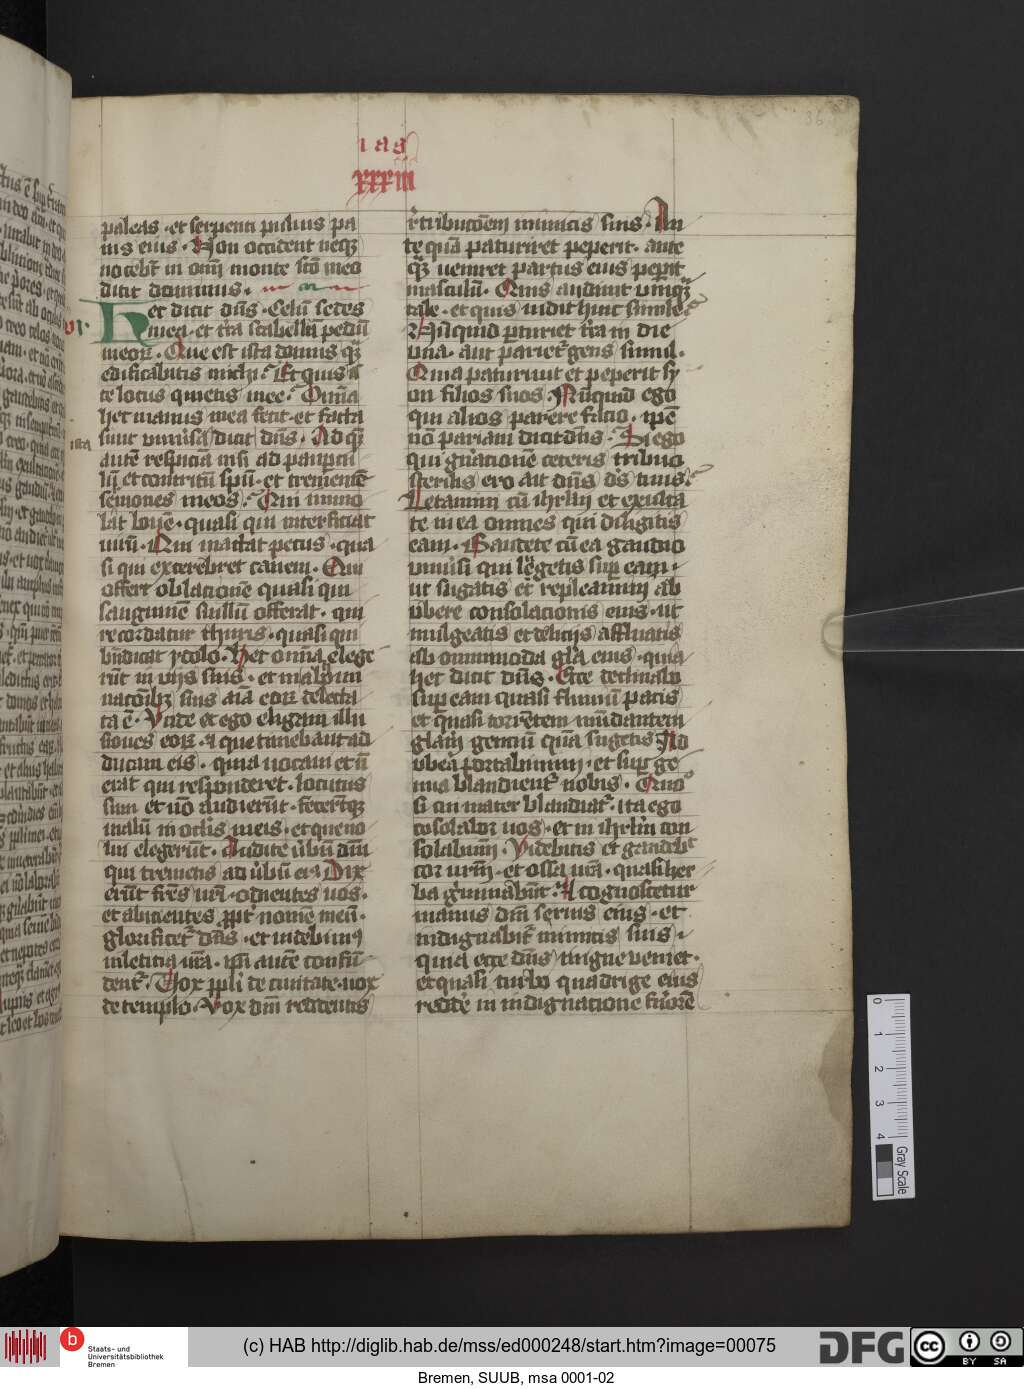 ias
xxxiii
paleas · et serpenti puluis pa
nis eius · Non occident neqȝ
nocebt̄ in om̄i monte sc̄o meo
dicit dominus ·
Hec dicit dn̄s · Celū sedes
mea · et t̄ra scabellū pedū
meoꝝ · Que est ista domus qᷓ
edificabitis michi · Et quis ē
te locus quietis mee · Om̄ia
hec manus mea fecit · et facta
sunt vniūsa dicit dn̄s · Ad qᷓ
ista
autē respiciā nisi ad paupcul
lū et contritū spū · et trementē
sermones meos · Qui immo
lat bouē · quasi qui interficiat
uirū · Qui mactat pecus · qua
si qui excerebret canem · Qui
offert oblacionē quasi qui
sanguinē suillū offerat · qui
recordatur thuris · quasi qui
bn̄dicat ydolo · Hec om̄ia elege
rūt in vijs suis · et in abhomi
nacōibȝ suis aīa eoꝝ delecta
ta ē · Vnde et ego eligam illu
siones eoꝝ · et que timebant ad
ducam eis · quia uocaui et nō
erat qui responderet · locutus
sum et nō audierūt · fecerūtqȝ
malū in oclis meis · et que no
lui elegerūt · Audite ūbū dn̄i
qui tremens ad ūbū eiꝰ Dix
erūt frēs urī · odientes uos ·
et abicientes ꝓpt̄ nomē meū ·
glorificet̄ dn̄s · et uidebimꝰ
in leticia ura · ip̄i autē confū
dent̄ · Vox ppli de ciuitate · uox
de templo · Vox dn̄i reddentis
r̄tribucōem inimicis suis · An
te qᷓ parturiret peperit · ante
qᷓ ueniret partus eius pepit
masculū · Quis audiuit vnqᷓ
tale · et quis uidit huic simile
Nūquid p̄turiet t̄ra in die
vna · aut pariet̄ gens simul ·
Quia parturiuit et peperit sy
on filios suos · Nūquid ego
qui alios parere facio · ip̄e
nō pariam dicit dn̄s · Si ego
qui gn̄acionē ceteris tribuo
sterilis ero ait dn̄s dš tuus
Letamini cū ihrlm et exulta
te in ea omnes qui diligitis
eam · Gaudete cū ea gaudio
vniūsi qui lugetis suꝑ eam ·
ut sugatis et repleamini ab
vbere consolacionis eius · ut
mulgeatis et delicijs affluatis
ab omnimoda gl̄a eius · quia
hec dicit dn̄s · Ecce declinabo
suꝑ eam quasi flumū pacis
et quasi torrētem inūdantem
glam genciū quā sugetis Ad
vbera portabimini · et suꝑ ge
nua blandient̄ uobis · Quo
si cui mater blandiat̄ · ita ego
cōsolabor uos · et in ihrlm con
solabimī · Videbitis et gaudebit
cor urm̄ · et ossa ura · quasi her
ba ḡminabūt · Et cognoscetur
manus dn̄i seruis eius · et
indignabit̄ inimicis suis ·
quia ecce dn̄s in igne veniet ·
et quasi turbo quadrige eius
redde in indignatione furorē
Gray Scale
(c) HAB http://diglib.hab.de/mss/ed000248/start.htm?image=00075
Staats- und
Universitätsbibliothek
Bremen
DFG
cc BY SA
Bremen, SUUB, msa 0001-02